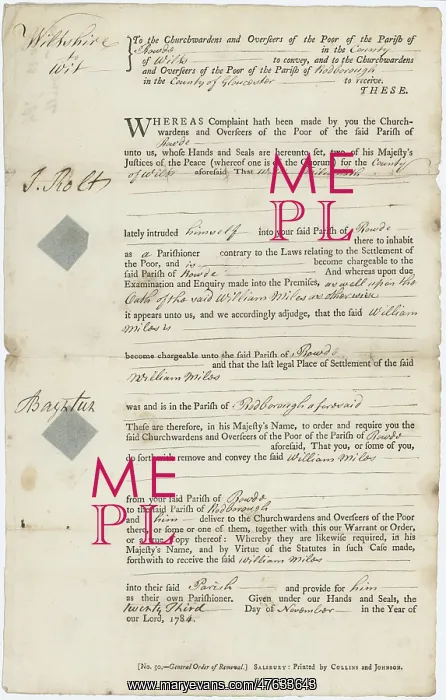 Wiltshire
to
Wit
To the Churchwardens and Overſeers of the Poor of the Pariſh of
Rowde in the County
of Wilts to convey, and to the Churchwardens
and Overſeers of the Poor of the Pariſh of Rodborough
in the County of Gloucester to receive.
THESE.
WHEREAS Complaint hath been made by you the Church-
wardens and Overſeers of the Poor of the ſaid Pariſh of
Rowde
unto us, whoſe Hands and Seals are hereunto ſet, two of his Majeſty's
Juſtices of the Peace (whereof one is of the Quorum) for the County
of Wilts aforeſaid That
J. Rolt
lately intruded himself into your ſaid Pariſh of Rowde
there to inhabit
as a Pariſhioner contrary to the Laws relating to the Settlement of
the Poor, and is become chargeable to the
ſaid Pariſh of Rowde And whereas upon due
Examination and Enquiry made into the Premiſes, as well upon the
Oath of the said William Miles as otherwise
it appears unto us, and we accordingly adjudge, that the ſaid William
Miles is
become chargeable unto the ſaid Pariſh of Rowde
and that the laſt legal Place of Settlement of the ſaid
William Miles
Bayntun
was and is in the Pariſh of Rodborough aforesaid
Theſe are therefore, in his Majeſty's Name, to order and require you the
ſaid Churchwardens and Overſeers of the Poor of the Pariſh of Rowde
aforeſaid, That you, or ſome of you,
do forthwith remove and convey the ſaid William Miles
from your ſaid Pariſh of Rowde
to the ſaid Pariſh of Rodborough
and him deliver to the Churchwardens and Overſeers of the Poor
there, or ſome or one of them, together with this our Warrant or Order,
or a true Copy thereof: Whereby they are likewiſe required, in his
Majeſty's Name, and by Virtue of the Statutes in ſuch Caſe made,
forthwith to receive the ſaid William Miles
into their ſaid Parish and provide for him
as their own Pariſhioner. Given under our Hands and Seals, the
twenty Third Day of November in the Year of
our Lord, 1784.
[No. 50,—General Order of Removal.] SALISBURY: Printed by COLLINS and JOHNSON.
ME
PL
ME
PL
www.maryevans.com/47633643